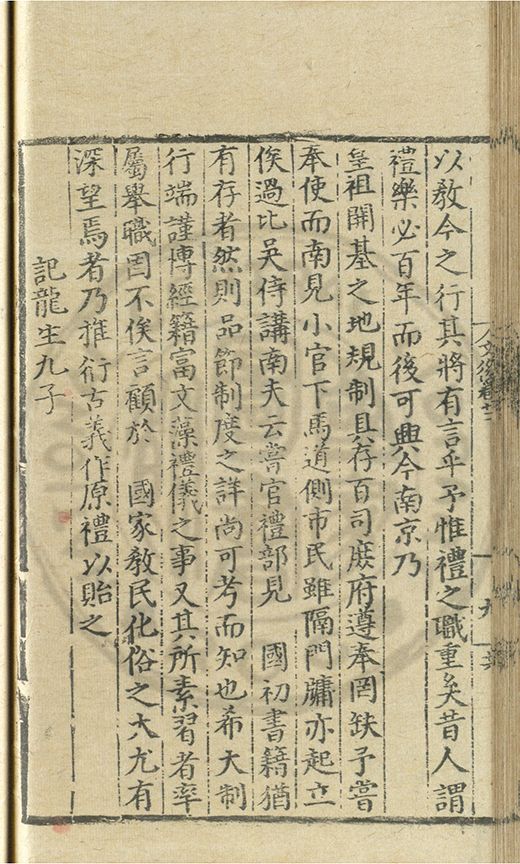 以敎今之行其將有言乎予惟禮之職重矣昔人謂
禮樂必百年而後可興今南京乃
皇祖開基之地規制具存百司庶府遵奉罔缺予嘗
奉使而南見小官下馬道側市民雖隔門牗亦起立
俟過比吳侍講南夫云嘗官禮部見 國初書籍猶
有存者然則品節制度之詳尚可考而知也希大制
行端謹博經籍富文藻禮儀之事又其所素習者率
屬舉職固不俟言顧於 國家敎民化俗之大尤有
深望焉者乃推衍古義作原禮以貽之
記龍生九子